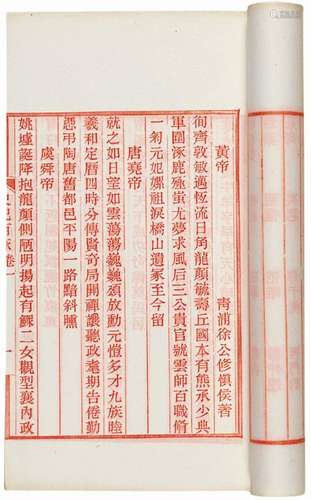 青浦徐公修慎侯著
黃帝
徇齊敦敏邁恆流日角龍顏毓壽丘國本有熊承少典
軍圍涿鹿殛蚩尤夢求風后三公貴官號雲師百職脩
一剎元妃嫘祖淚橋山遺冢至今留
唐堯帝
就之如日望如雲蕩蕩巍巍頌放勳元愷多才九族睦
羲和定曆四時分傳賢奇局開禪讓聽政耄期告倦勤
憑弔陶唐舊都邑平陽一路黯斜曛
虞舜帝
姚墟誕降抱龍顏側陋明揚起有鰥二女觀型襄內政
史記百詠卷一
一